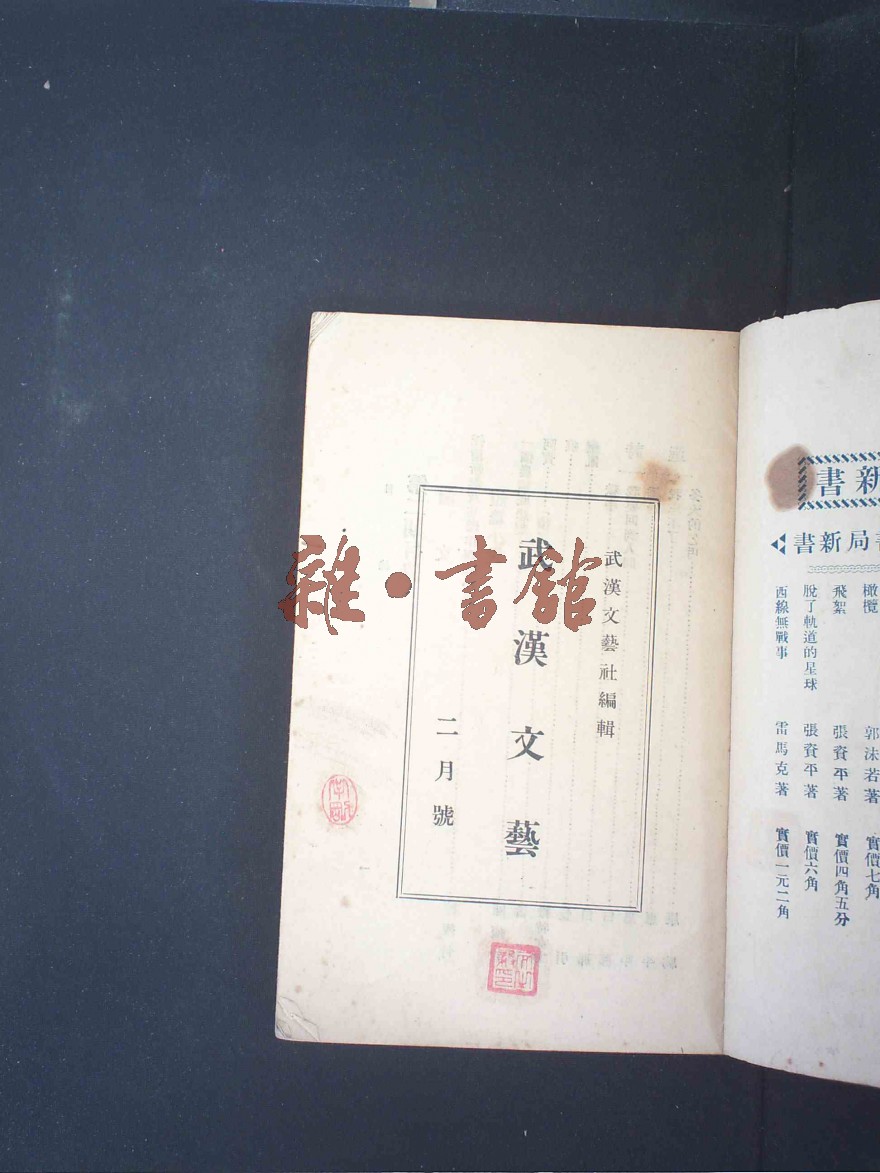 武漢文藝社編輯
武漢文藝
二月號
雜·書館
新書
書局新書
橄欖 郭沫若著 實價七角
飛絮 張資平著 實價四角五分
脫了軌道的星球 張資平著 實價六角
西線無戰事 雷馬克著 實價一元二角